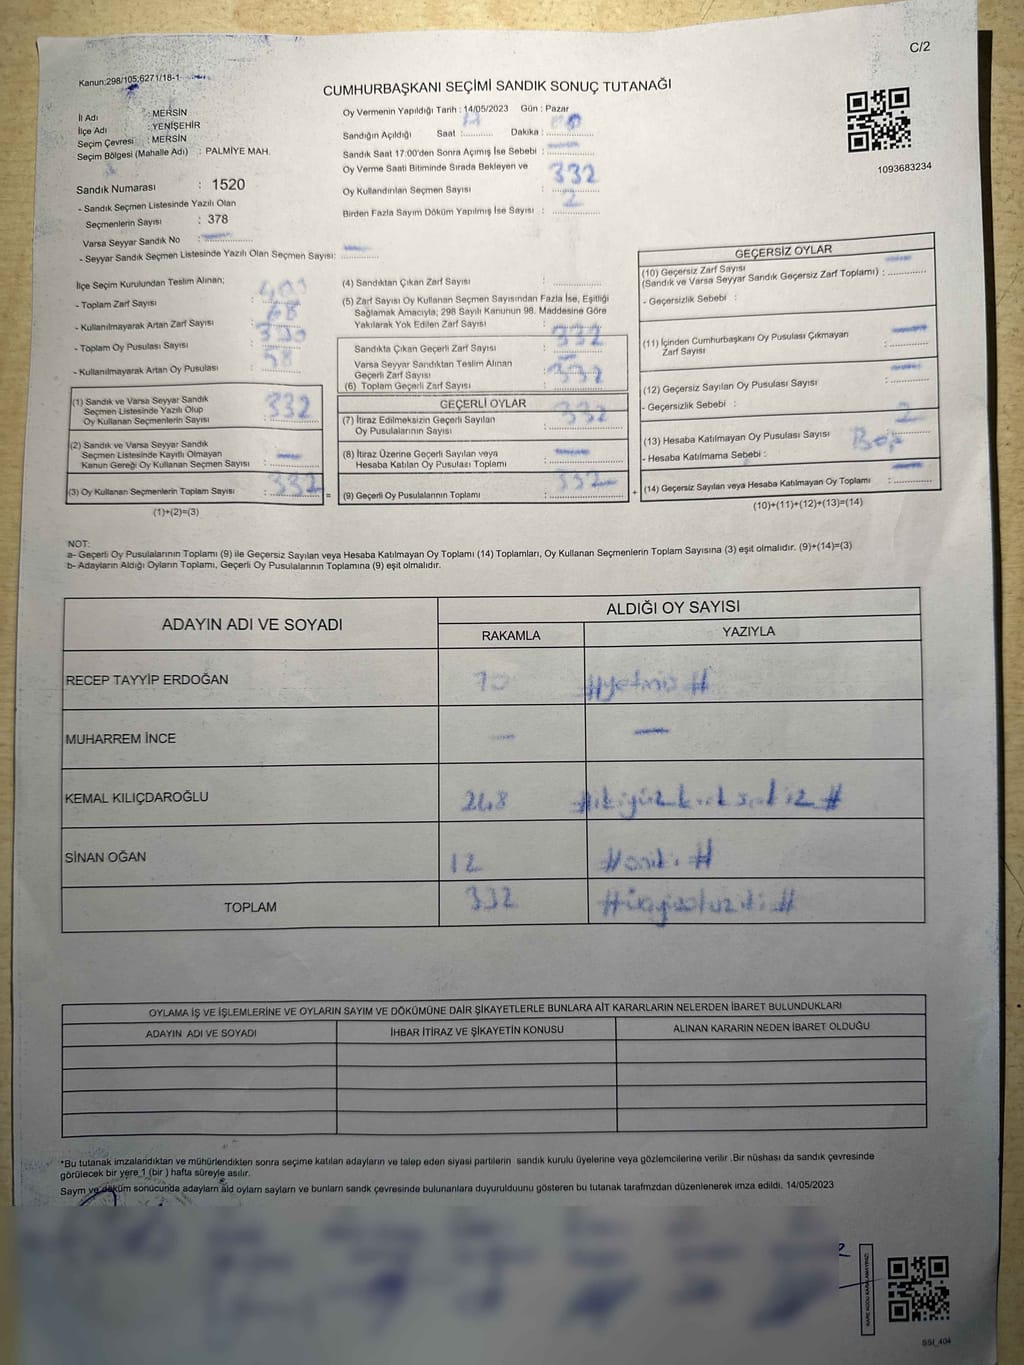 C/2
Kanun:298/105;6271/18-1
CUMHURBAŞKANI SEÇİMİ SANDIK SONUÇ TUTANAĞI
İl Adı : MERSİN
İlçe Adı : YENİŞEHİR
Seçim Çevresi : MERSİN
Seçim Bölgesi (Mahalle Adı) : PALMİYE MAH.
Oy Vermenin Yapıldığı Tarih : 14/05/2023 Gün : Pazar
Sandığın Açıldığı Saat : Dakika :
Sandık Saat 17:00'den Sonra Açımış İse Sebebi :
Oy Verme Saati Bitiminde Sırada Bekleyen ve
Oy Kullandırılan Seçmen Sayısı : 332
Birden Fazla Sayım Döküm Yapılmış İse Sayısı : 2
1093683234
Sandık Numarası : 1520
- Sandık Seçmen Listesinde Yazılı Olan
Seçmenlerin Sayısı : 378
Varsa Seyyar Sandık No :
- Seyyar Sandık Seçmen Listesinde Yazılı Olan Seçmen Sayısı:
İlçe Seçim Kurulundan Teslim Alınan;
- Toplam Zarf Sayısı :
- Kullanılmayarak Artan Zarf Sayısı : 68
- Toplam Oy Pusulası Sayısı :
- Kullanılmayarak Artan Oy Pusulası : 58
(1) Sandık ve Varsa Seyyar Sandık
Seçmen Listesinde Yazılı Olup
Oy Kullanan Seçmenlerin Sayısı : 332
(2) Sandık ve Varsa Seyyar Sandık
Seçmen Listesinde Kayıtlı Olmayan
Kanun Gereği Oy Kullanan Seçmen Sayısı :
(3) Oy Kullanan Seçmenlerin Toplam Sayısı : 332 =
(1)+(2)=(3)
(4) Sandıktan Çıkan Zarf Sayısı :
(5) Zarf Sayısı Oy Kullanan Seçmen Sayısından Fazla İse, Eşitliği
Sağlamak Amacıyla; 298 Sayılı Kanunun 98. Maddesine Göre
Yakılarak Yok Edilen Zarf Sayısı :
Sandıkta Çıkan Geçerli Zarf Sayısı : 332
Varsa Seyyar Sandıktan Teslim Alınan
Geçerli Zarf Sayısı :
(6) Toplam Geçerli Zarf Sayısı : 332
GEÇERLİ OYLAR
(7) İtiraz Edilmeksizin Geçerli Sayılan
Oy Pusulalarının Sayısı : 332
(8) İtiraz Üzerine Geçerli Sayılan veya
Hesaba Katılan Oy Pusulası Toplamı :
(9) Geçerli Oy Pusulalarının Toplamı : 332 +
GEÇERSİZ OYLAR
(10) Geçersiz Zarf Sayısı
(Sandık ve Varsa Seyyar Sandık Geçersiz Zarf Toplamı) :
- Geçersizlik Sebebi :
(11) İçinden Cumhurbaşkanı Oy Pusulası Çıkmayan
Zarf Sayısı :
(12) Geçersiz Sayılan Oy Pusulası Sayısı :
- Geçersizlik Sebebi :
(13) Hesaba Katılmayan Oy Pusulası Sayısı : 2
- Hesaba Katılmama Sebebi : Boş
(14) Geçersiz Sayılan veya Hesaba Katılmayan Oy Toplamı :
(10)+(11)+(12)+(13)=(14)
NOT:
a- Geçerli Oy Pusulalarının Toplamı (9) ile Geçersiz Sayılan veya Hesaba Katılmayan Oy Toplamı (14) Toplamları, Oy Kullanan Seçmenlerin Toplam Sayısına (3) eşit olmalıdır. (9)+(14)=(3)
b- Adayların Aldığı Oyların Toplamı, Geçerli Oy Pusulalarının Toplamına (9) eşit olmalıdır.
ADAYIN ADI VE SOYADI
ALDIĞI OY SAYISI
RAKAMLA YAZIYLA
RECEP TAYYİP ERDOĞAN 70 #yetmiş#
MUHARREM İNCE — —
KEMAL KILIÇDAROĞLU 248 #ikiyüzkırksekiz#
SİNAN OĞAN 12 #oniki#
TOPLAM 332
OYLAMA İŞ VE İŞLEMLERİNE VE OYLARIN SAYIM VE DÖKÜMÜNE DAİR ŞİKAYETLERLE BUNLARA AİT KARARLARIN NELERDEN İBARET BULUNDUKLARI
ADAYIN ADI VE SOYADI İHBAR İTİRAZ VE ŞİKAYETİN KONUSU ALINAN KARARIN NEDEN İBARET OLDUĞU
*Bu tutanak imzalandıktan ve mühürlendikten sonra seçime katılan adayların ve talep eden siyasi partilerin sandık kurulu üyelerine veya gözlemcilerine verilir .Bir nüshası da sandık çevresinde
görülecek bir yere 1 (bir ) hafta süreyle asılır.
Saym ve döküm sonucunda adaylarn ald oylarn saylarn ve bunlarn sandk çevresinde bulunanlara duyurulduunu gösteren bu tutanak tarafmzdan düzenlenerek imza edildi. 14/05/2023
KARE KODU KARALAMAYINIZ!
SSI_404